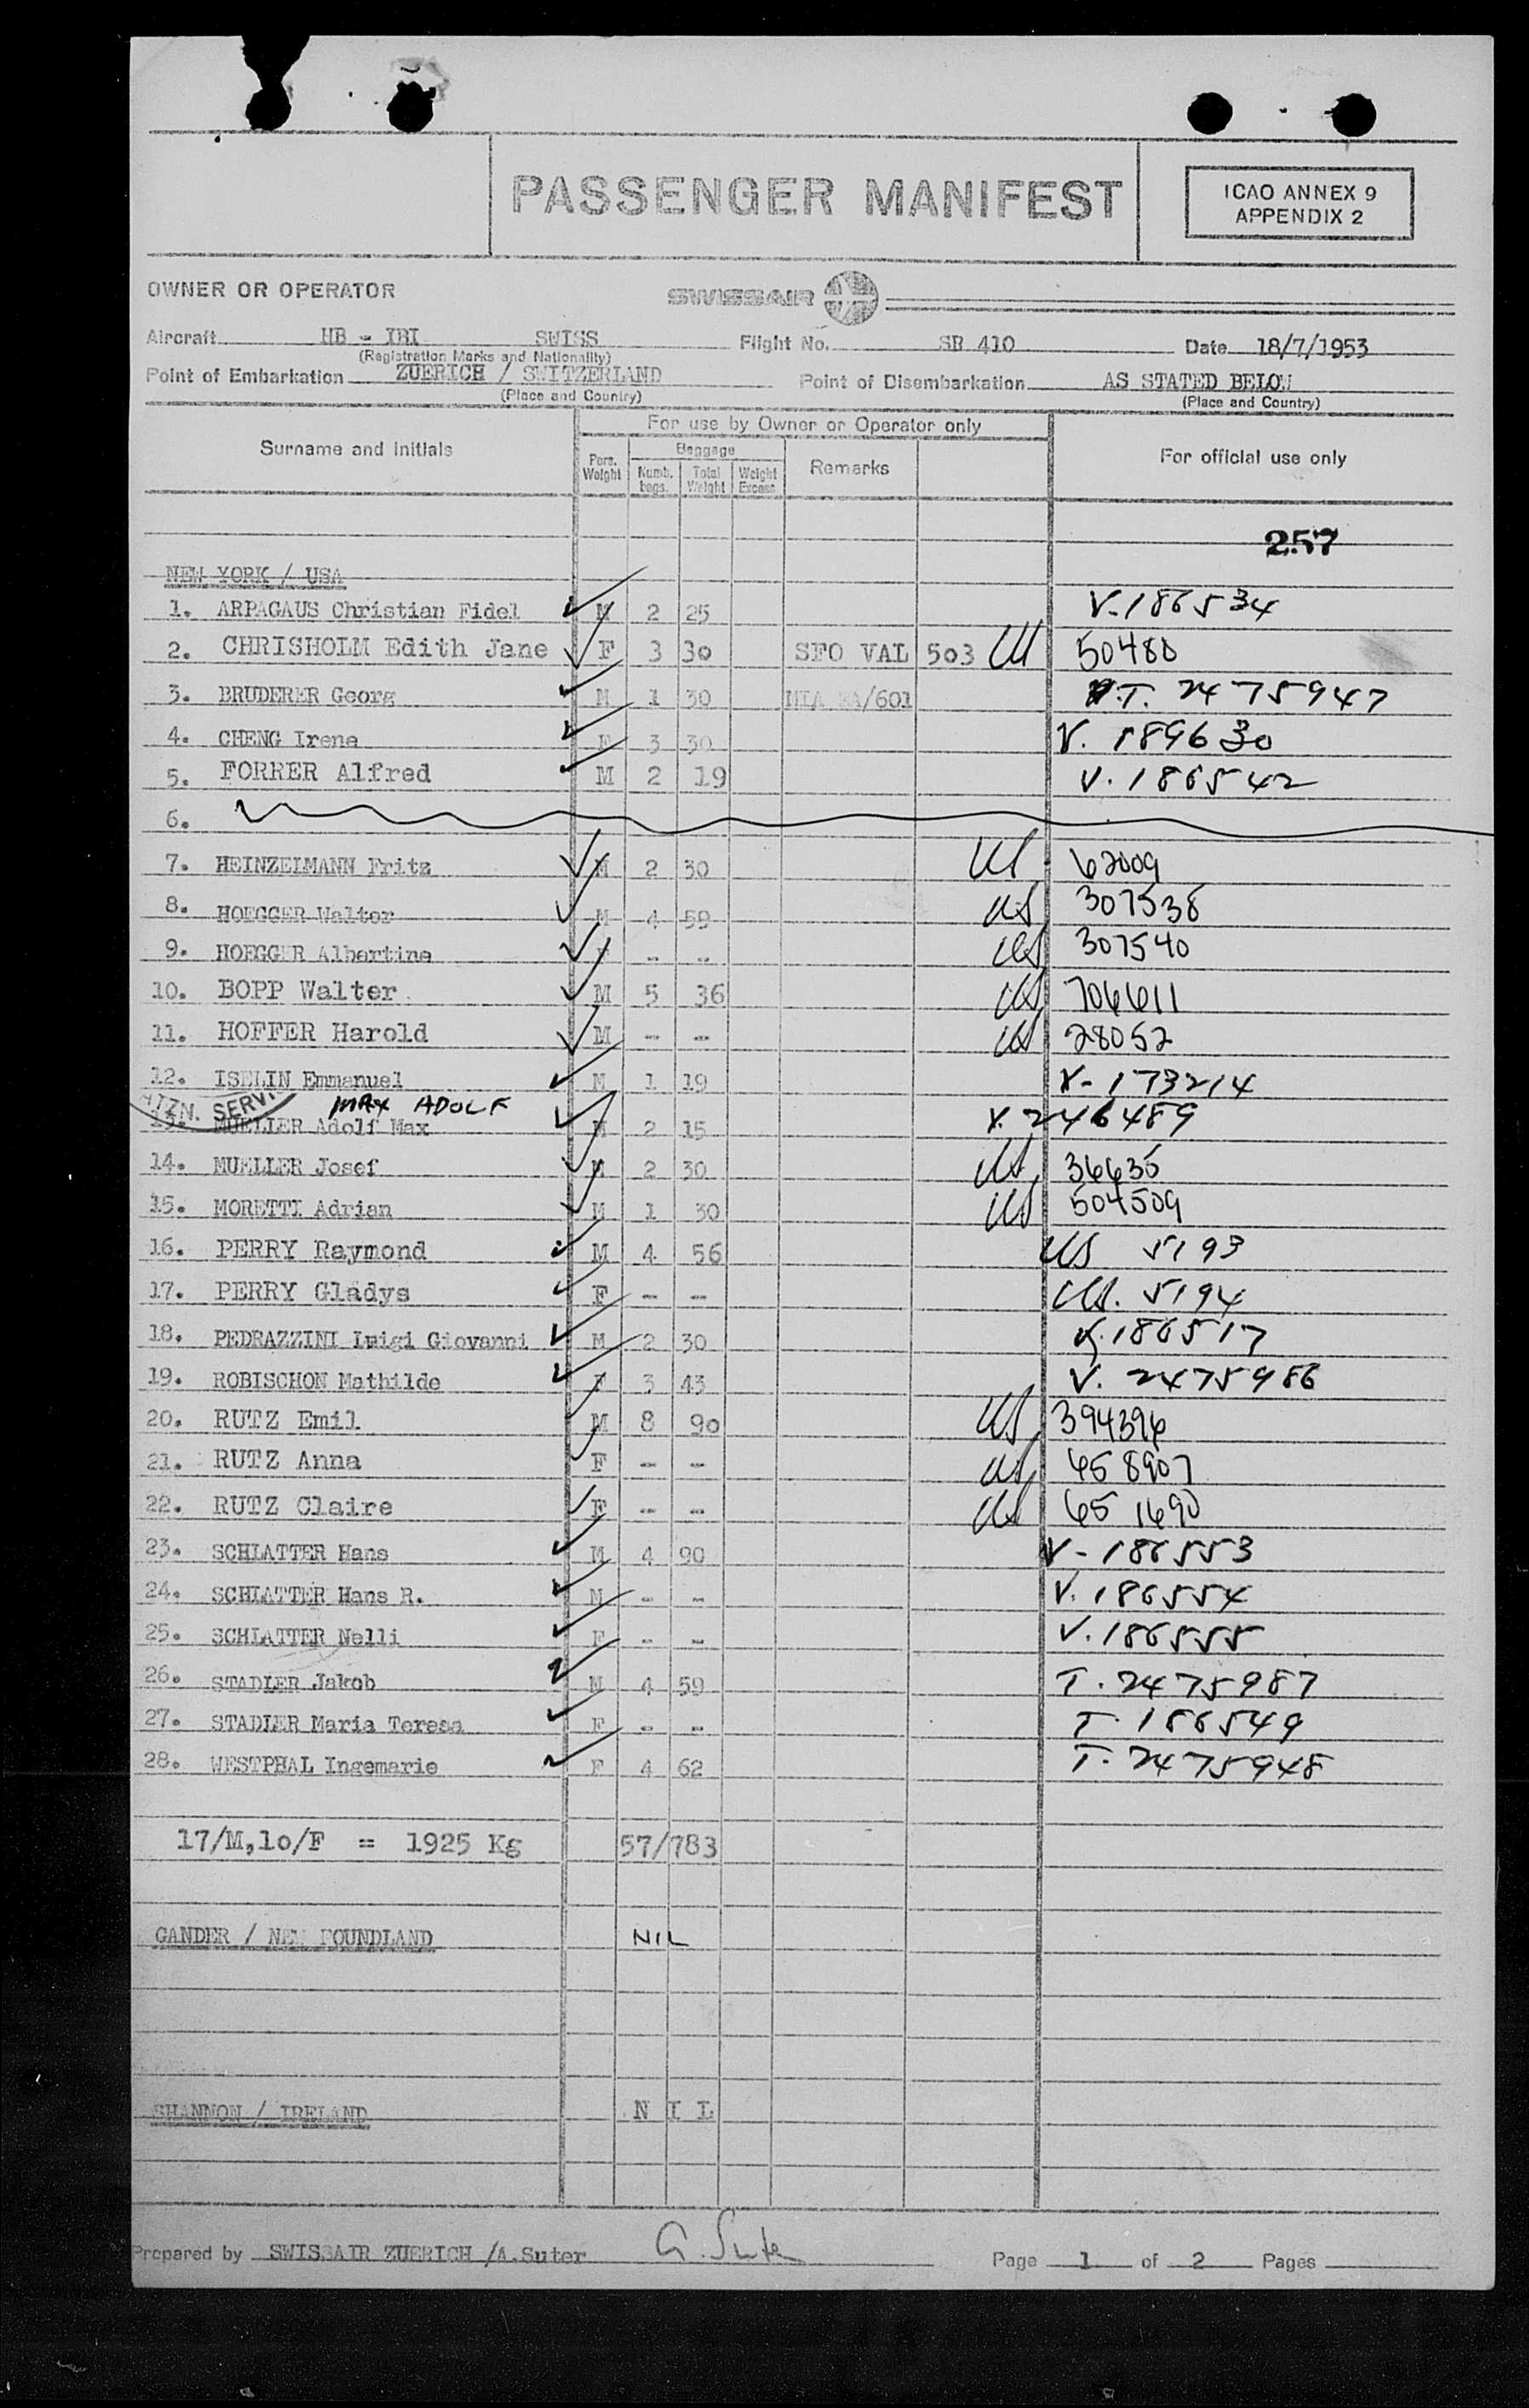 PASSENGER MANIFEST
ICAO ANNEX 9
APPENDIX 2
OWNER OR OPERATOR SWISSAIR
Aircraft HB - IBI SWISS Flight No. SR 410 Date 18/7/1953
(Registration Marks and Nationality)
Point of Embarkation ZUERICH / SWITZERLAND Point of Disembarkation AS STATED BELOW
(Place and Country) (Place and Country)
For use by Owner or Operator only
Surname and Initials Pers. Weight Baggage Numb. bags. Total Weight Weight Excess Remarks For official use only
257
NEW YORK / USA
1. ARPAGAUS Christian Fidel M 2 25 V-186534
2. CHRISHOLM Edith Jane F 3 30 SFO VAL 503 US 50480
3. BRUDERER Georg M 1 30 MIA EA/601 T. 2475947
4. CHENG Irene F 3 30 V. 189630
5. FORRER Alfred M 2 19 V. 186542
6.
7. HEINZELMANN Fritz M 2 30 US 62009
8. HOEGGER Walter M 4 59 US 307538
9. HOEGGER Albertine F - - US 307540
10. BOPP Walter M 5 36 US 706611
11. HOFFER Harold M - - US 28052
12. ISELIN Emmanuel M 1 19 V- 173214
MAX ADOLF
13. MUELLER Adolf Max M 2 15 V. 246489
14. MUELLER Josef M 2 30 US 36635
15. MORETTI Adrian M 1 30 US 504509
16. PERRY Raymond M 4 56 US 5193
17. PERRY Gladys F - - US. 5194
18. PEDRAZZINI Luigi Giovanni M 2 30 V. 186517
19. ROBISCHON Mathilde F 3 43 V. 2475986
20. RUTZ Emil M 8 90 US 394396
21. RUTZ Anna F - - US 458907
22. RUTZ Claire F - - US 651690
23. SCHLATTER Hans M 4 90 V- 186553
24. SCHLATTER Hans R. M - - V. 186554
25. SCHLATTER Nelli F - - V. 186555
26. STADLER Jakob M 4 59 T. 2475987
27. STADLER Maria Teresa F - - T. 186549
28. WESTPHAL Ingemarie F 4 62 T. 2475948
17/M,1o/F = 1925 Kg 57/783
GANDER / NEW FOUNDLAND NIL
SHANNON / IRELAND N I L
Prepared by SWISSAIR ZUERICH /A.Suter A. Suter Page 1 of 2 Pages